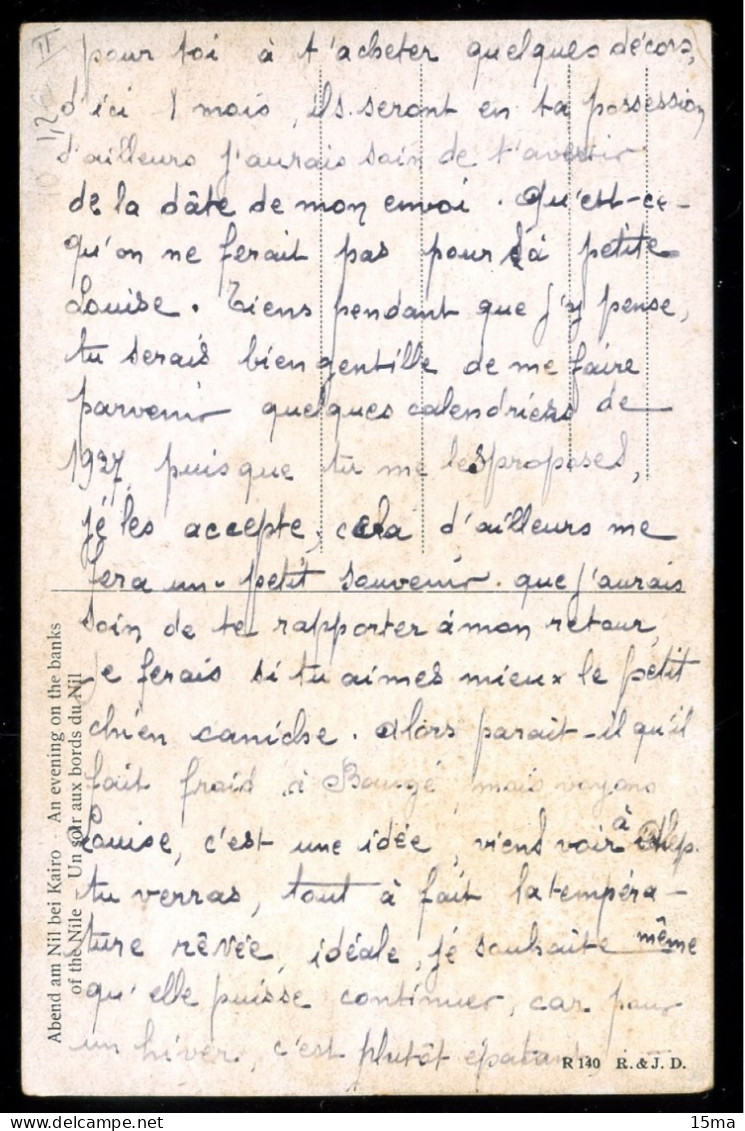 II
pour toi à t'acheter quelques décors,
d'ici 1 mois, ils seront en ta possession
d'ailleurs j'aurais soin de t'avertir
de la dâte de mon envoi. Qu'est-ce-
qu'on ne ferait pas pour sa petite
Louise. Tiens pendant que j'y pense,
tu serais bien gentille de me faire
parvenir quelques calendriers de
1927, puisque tu me les proposes,
je les accepte, cela d'ailleurs me
fera un petit souvenir que j'aurais
soin de te rapporter à mon retour,
je ferais si tu aimes mieux le petit
chien caniche. Alors parait-il qu'il
fait frais à Bougé, mais voyons
Louise, c'est une idée, viens voir à Alep.
tu verras, tout à fait la tempéra-
ture rêvée, idéale, je souhaite même
qu'elle puisse continuer, car pour
un hiver, c'est plutôt épatant,
Abend am Nil bei Kairo - An evening on the banks
of the Nile - Un soir aux bords du Nil
R 140 R. & J. D.
15ma